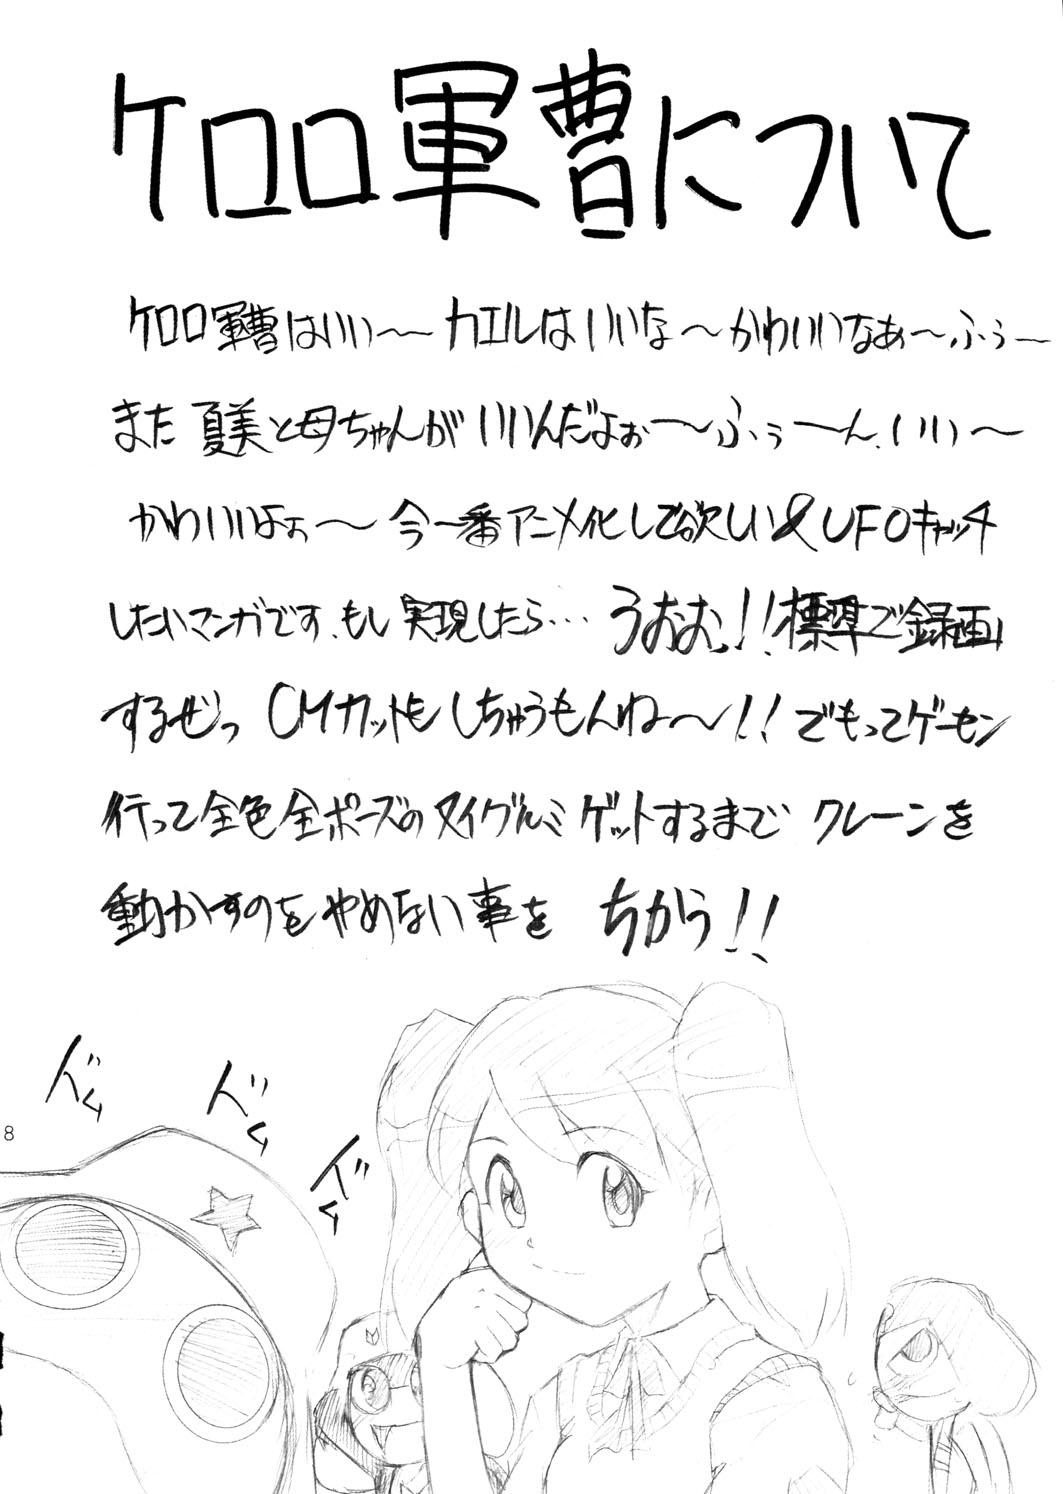 ケロロ軍曹について
ケロロ軍曹はいい～カエルはいいな～かわいいなぁ～ふぅ～
また夏美と母ちゃんがいいんだよぉ～ふぅーん、いい～
かわいいよぉ～今一番アニメ化して欲しい&UFOキャッチ
したいマンガです、もし実現したら…うおお!!標準で録画
するぜっ CMカットもしちゃうもんね～!!でもってゲーセン
行って全色全ポーズのヌイグルミゲットするまでクレーンを
動かすのをやめない事を ちかう!!
ドん
ドん
ドん
8